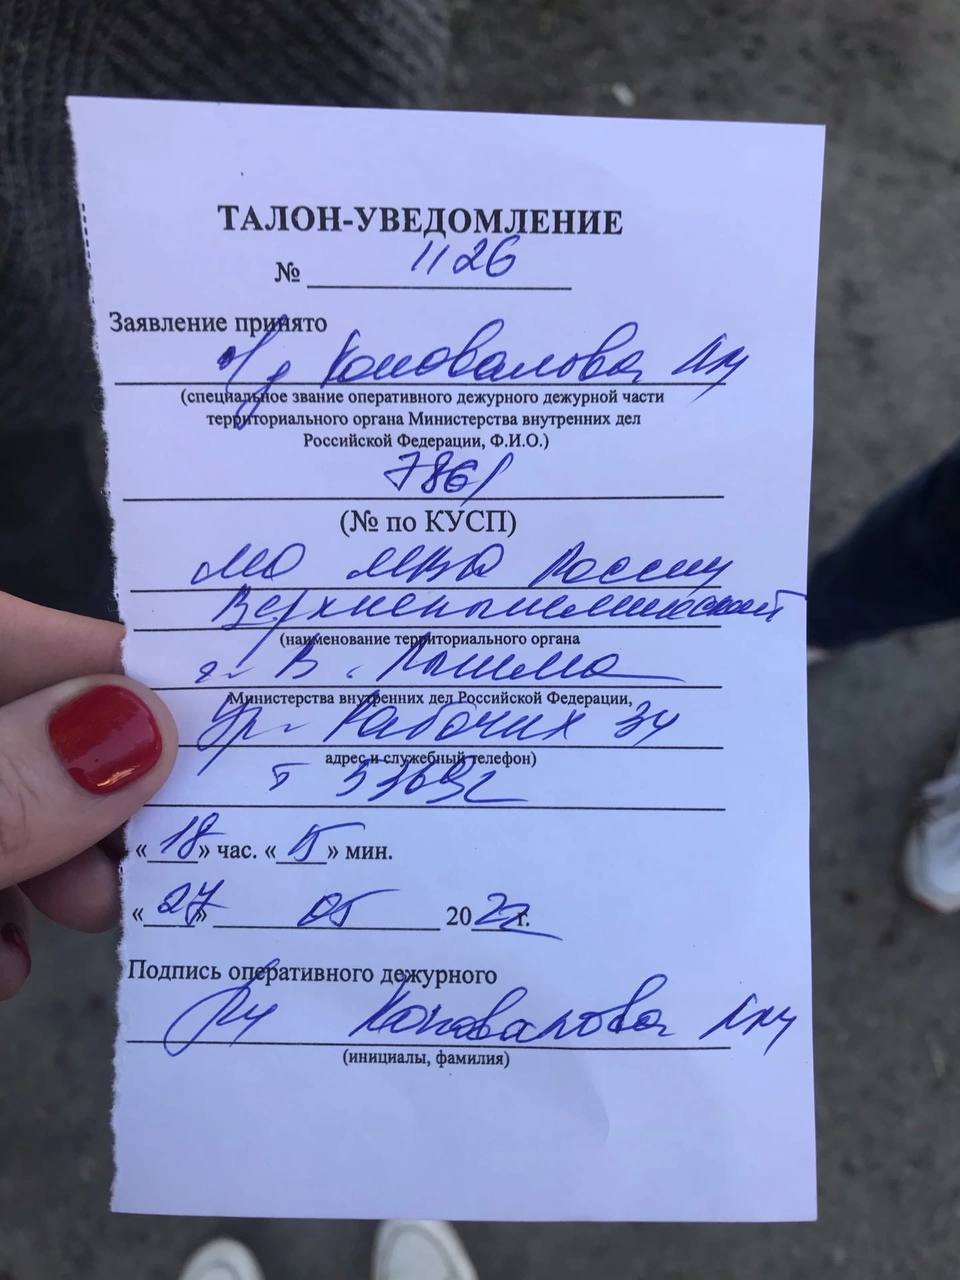 ТАЛОН-УВЕДОМЛЕНИЕ
№ 1126
Заявление принято
Коновалова
(специальное звание оперативного дежурного дежурной части
территориального органа Министерства внутренних дел
Российской Федерации, Ф.И.О.)
7861
(№ по КУСП)
МО МВД России
Верхнепышминский
(наименование территориального органа
г. В. Пышма
Министерства внутренних дел Российской Федерации,
Рабочих 34
адрес и служебный телефон)
т
«18» час. «15» мин.
«27» 05 2022 г.
Подпись оперативного дежурного
Коновалова
(инициалы, фамилия)